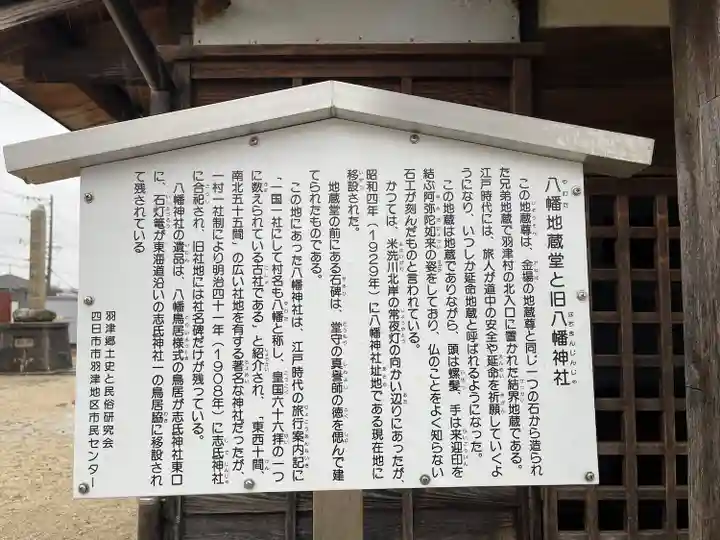 八幡地蔵堂と旧八幡神社
この地蔵尊は、金場の地蔵尊と同じ一つの石から造られ
た兄弟地蔵で羽津村の北入口に置かれた結界地蔵である。
江戸時代には、旅人が道中の安全や延命を祈願していくよ
うになり、いつしか延命地蔵と呼ばれるようになった。
この地蔵は地蔵でありながら、頭は螺髪、手は来迎印を
結ぶ阿弥陀如来の姿をしており、仏のことをよく知らない
石工が刻んだものと言われている。
かつては、米洗川北岸の常夜灯の向かい辺りにあったが、
昭和四年(1929年)に八幡神社址地である現在地に
移設された。
地蔵堂の前にある石碑は、堂守の真誉師の徳を偲んで建
てられたものである。
この地にあった八幡神社は、江戸時代の旅行案内記に
“一国一社にして村名も八幡と称し、皇国六十六拝の一つ
に数えられている古社である”と紹介され、“東西十間、
南北五十五間”の広い社地を有する著名な神社だったが、
一村一社制により明治四十一年(1908年)に志氐神社
に合祀され、旧社地には社名碑だけが残っている。
八幡神社の遺品は、八幡鳥居様式の鳥居が志氐神社東口
に、石灯篭が東海道沿いの志氐神社一の鳥居脇に移設され
て残されている
羽津郷土史と民俗研究会
四日市市羽津地区市民センター